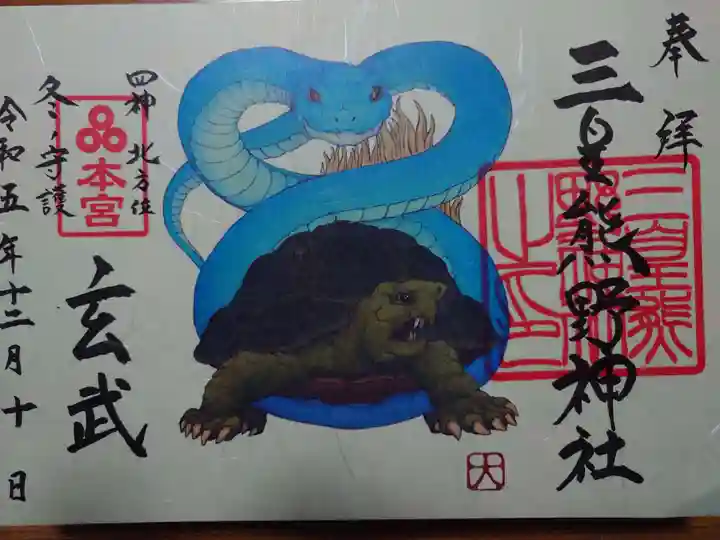 奉拝
三皇熊野神社
四神 北方位
冬ノ守護
玄武
令和五年十二月十日
本宮